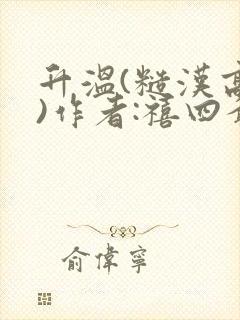 升溫(糙漢高
)作者:禧四
俞偉寧